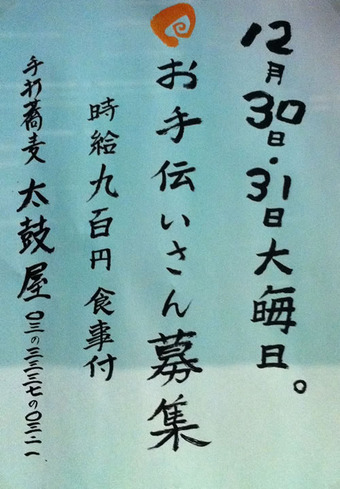 12月30日・31日大晦日。
お手伝いさん募集
時給九百円 食事付
手打蕎麦 太鼓屋 〇三の三二三七の〇三一一